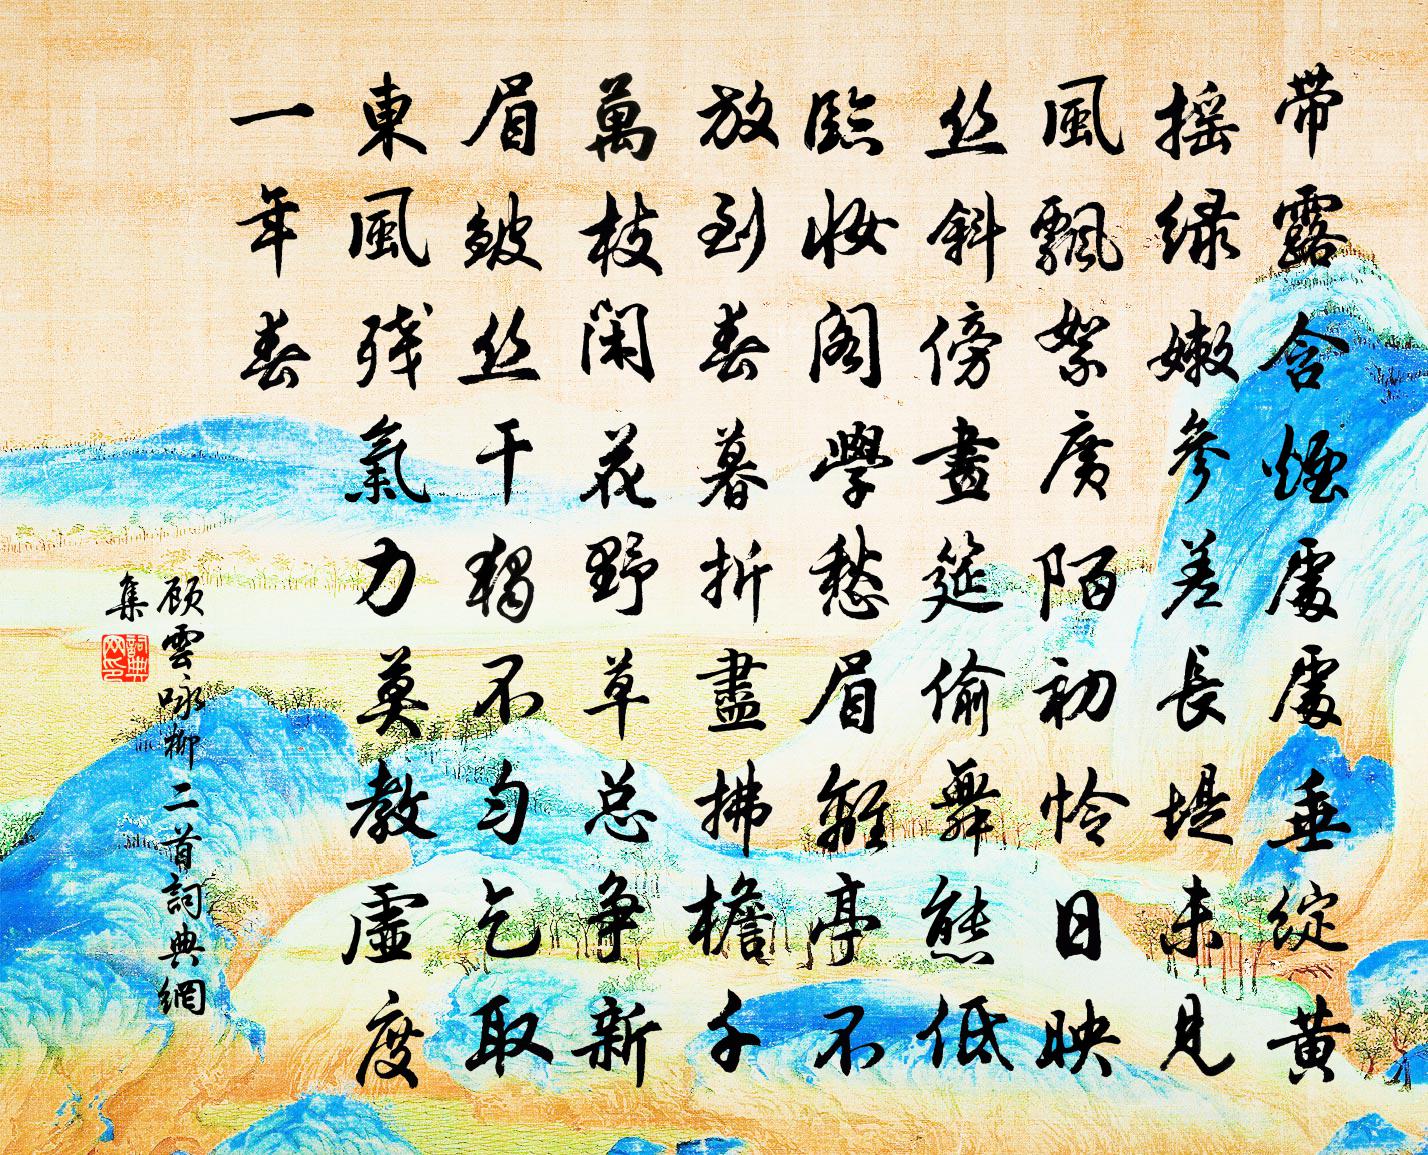 带露含煙處處垂綻黄
摇緑嫩參差長堤未見
風飄絮廣陌初怜日映
丝斜傍畫筵偷舞態低
臨妝閣學愁眉離亭不
放到春暮折盡拂檐千
萬枝闲花野草总争新
眉皱丝干獨不匀乞取
東風残氣力莫教虛度
一年春
顾雲咏柳二首詞典網
集
詞典
网印